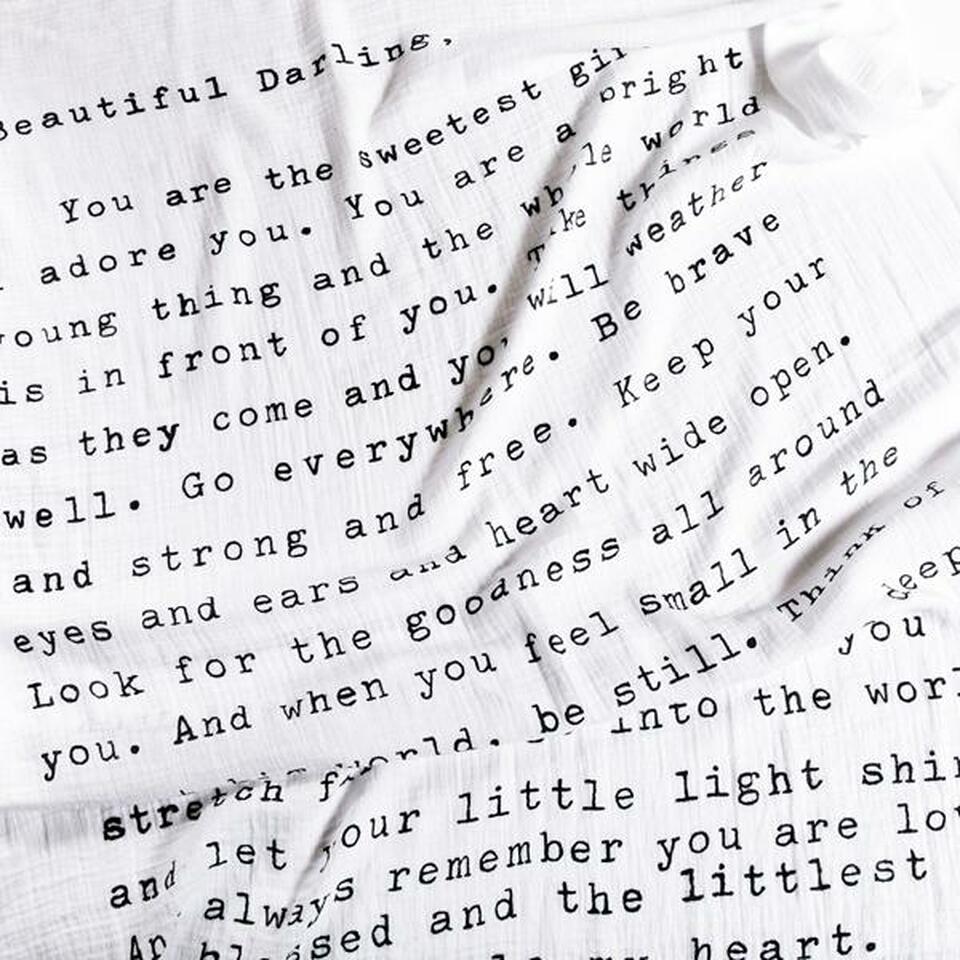 Beautiful Darling,
You are the sweetest
adore you. You are a bright
young thing and the whole world
is in front of you. Take things
as they come and you will weather
well. Go everywhere. Be brave
and strong and free. Keep your
eyes and ears and heart wide open.
Look for the goodness all around
you. And when you feel small in the
world, be still. Think of
stretch into the
you deep
and let your little light
always remember you are
and the littlest
heart.